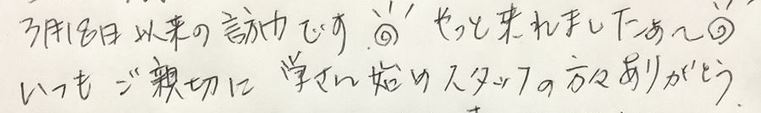 3月18日以来の訪中です やっと来れましたぁ〜
いつもご親切に 学さん始めスタッフの方々ありがとう